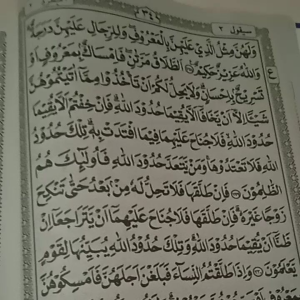 سيقول ٢
وَلَهُنَّ مِثْلُ الَّذِي عَلَيْهِنَّ بِالْمَعْرُوفِ وَلِلرِّجَالِ عَلَيْهِنَّ دَرَجَةٌ
وَاللَّهُ عَزِيزٌ حَكِيمٌ الطَّلَاقُ مَرَّتَانِ فَإِمْسَاكٌ بِمَعْرُوفٍ أَوْ
تَسْرِيحٌ بِإِحْسَانٍ وَلَا يَحِلُّ لَكُمْ أَنْ تَأْخُذُوا مِمَّا آتَيْتُمُوهُنَّ
شَيْئًا إِلَّا أَنْ يَخَافَا أَلَّا يُقِيمَا حُدُودَ اللَّهِ فَإِنْ خِفْتُمْ أَلَّا يُقِيمَا
حُدُودَ اللَّهِ فَلَا جُنَاحَ عَلَيْهِمَا فِيمَا افْتَدَتْ بِهِ تِلْكَ حُدُودُ
اللَّهِ فَلَا تَعْتَدُوهَا وَمَنْ يَتَعَدَّ حُدُودَ اللَّهِ فَأُولَٰئِكَ هُمُ
الظَّالِمُونَ فَإِنْ طَلَّقَهَا فَلَا تَحِلُّ لَهُ مِنْ بَعْدُ حَتَّىٰ تَنْكِحَ
زَوْجًا غَيْرَهُ فَإِنْ طَلَّقَهَا فَلَا جُنَاحَ عَلَيْهِمَا أَنْ يَتَرَاجَعَا إِنْ
ظَنَّا أَنْ يُقِيمَا حُدُودَ اللَّهِ وَتِلْكَ حُدُودُ اللَّهِ يُبَيِّنُهَا لِقَوْمٍ
يَعْلَمُونَ وَإِذَا طَلَّقْتُمُ النِّسَاءَ فَبَلَغْنَ أَجَلَهُنَّ فَأَمْسِكُوهُنَّ